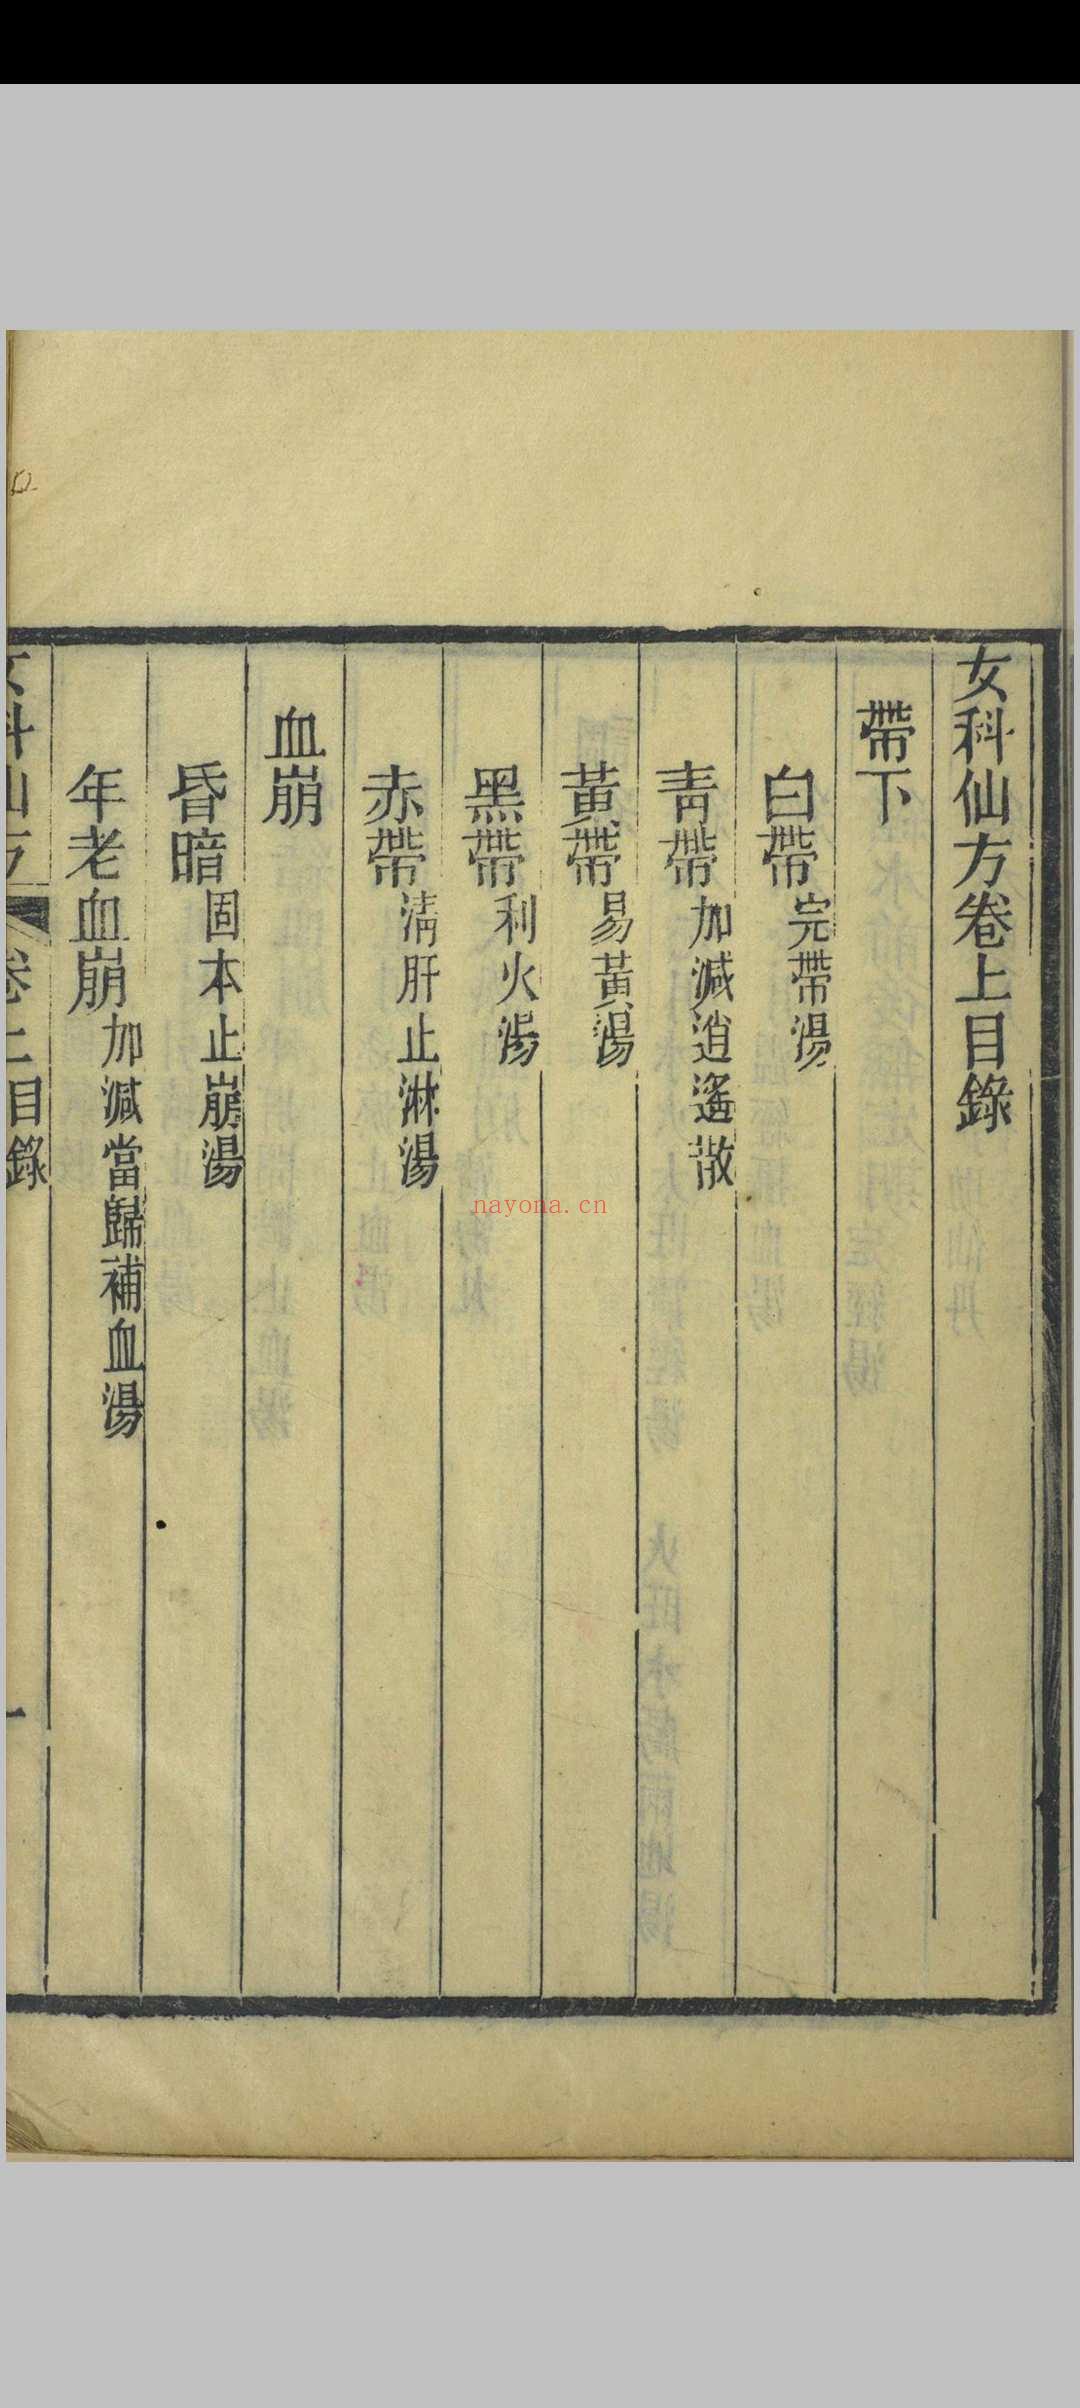 女科仙方卷上目錄
帶下
白帶完帶湯
青帶加減逍遙散
黃帶易黃湯
黑帶利火湯
赤帶清肝止淋湯
血崩
昏暗固本止崩湯
年老血崩加減當歸補血湯
女科仙方 卷上目錄 一
nayona.cn